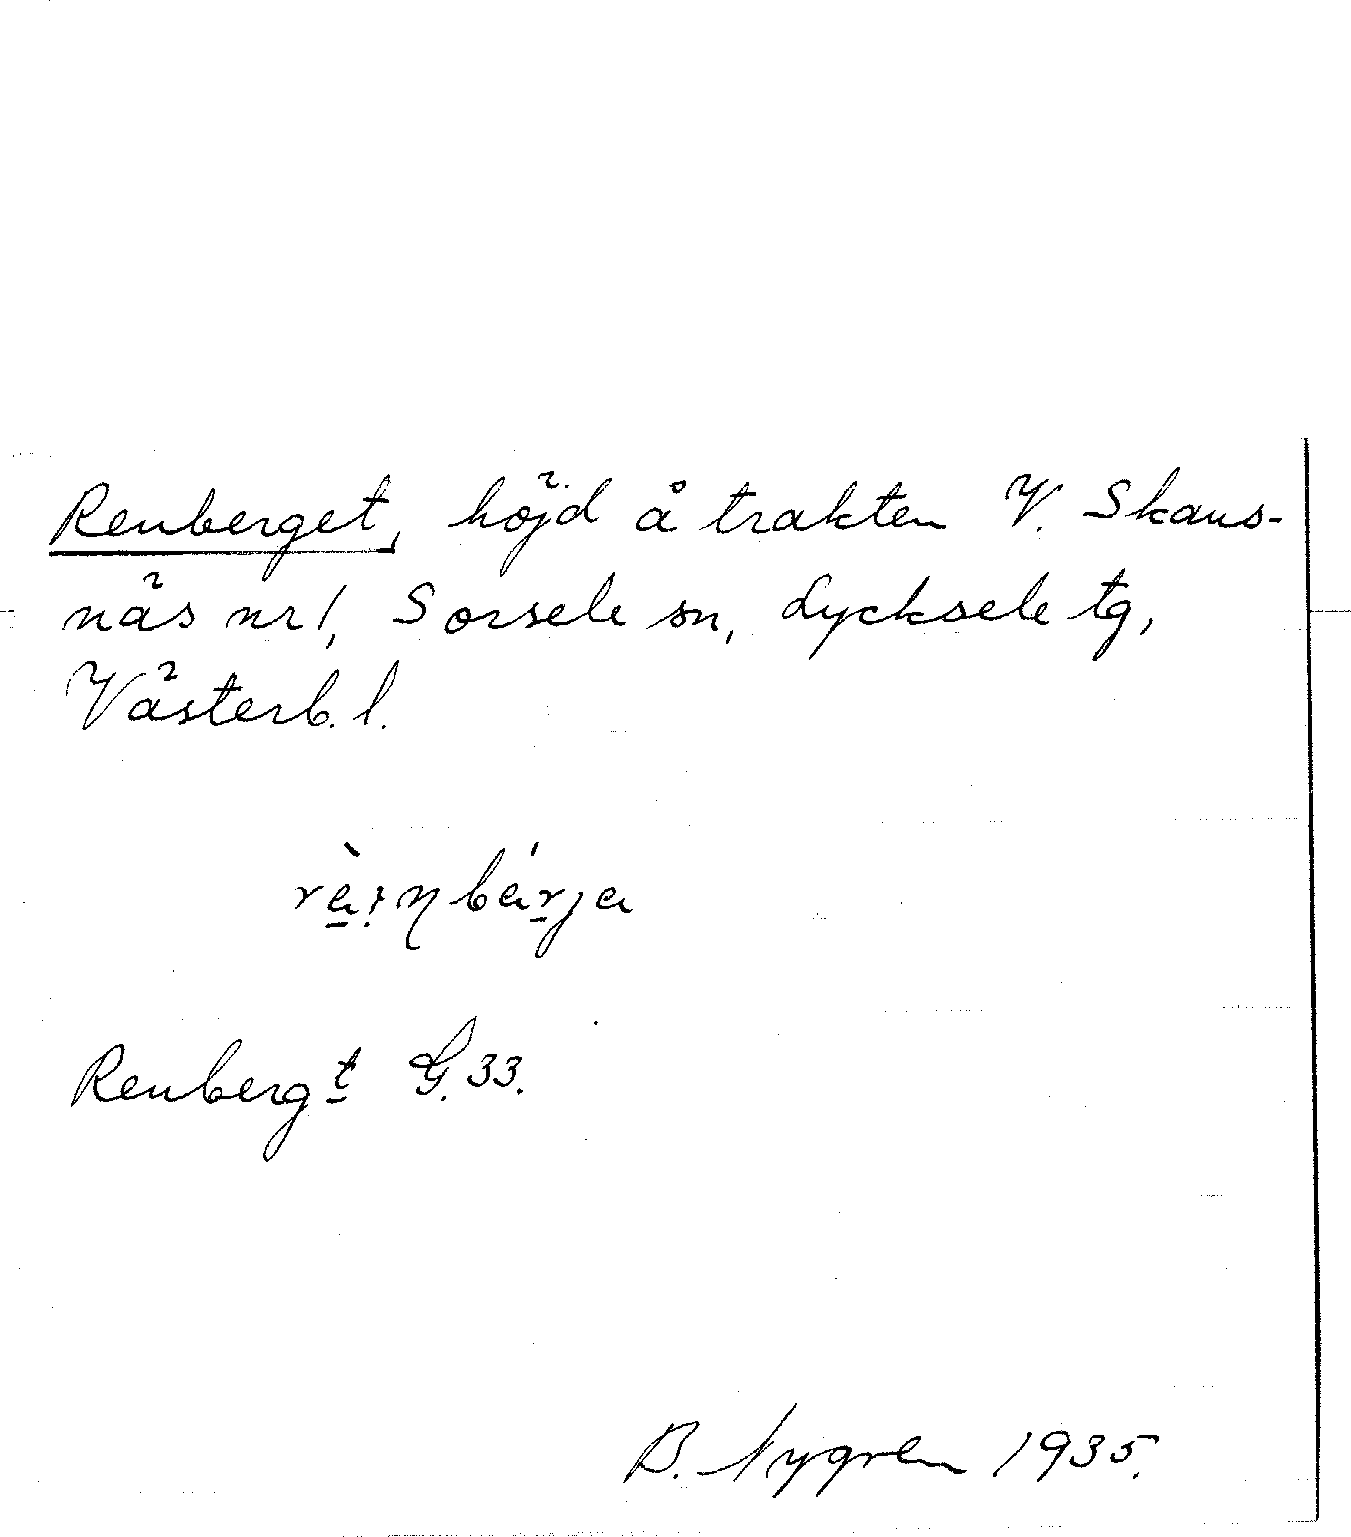 Renberget, höjd å trakten V. Skans-
näs nr 1, Sorsele sn, Lycksele tg,
Västerb. l.
Renberg t G. 33.
B. Nygren 1935.